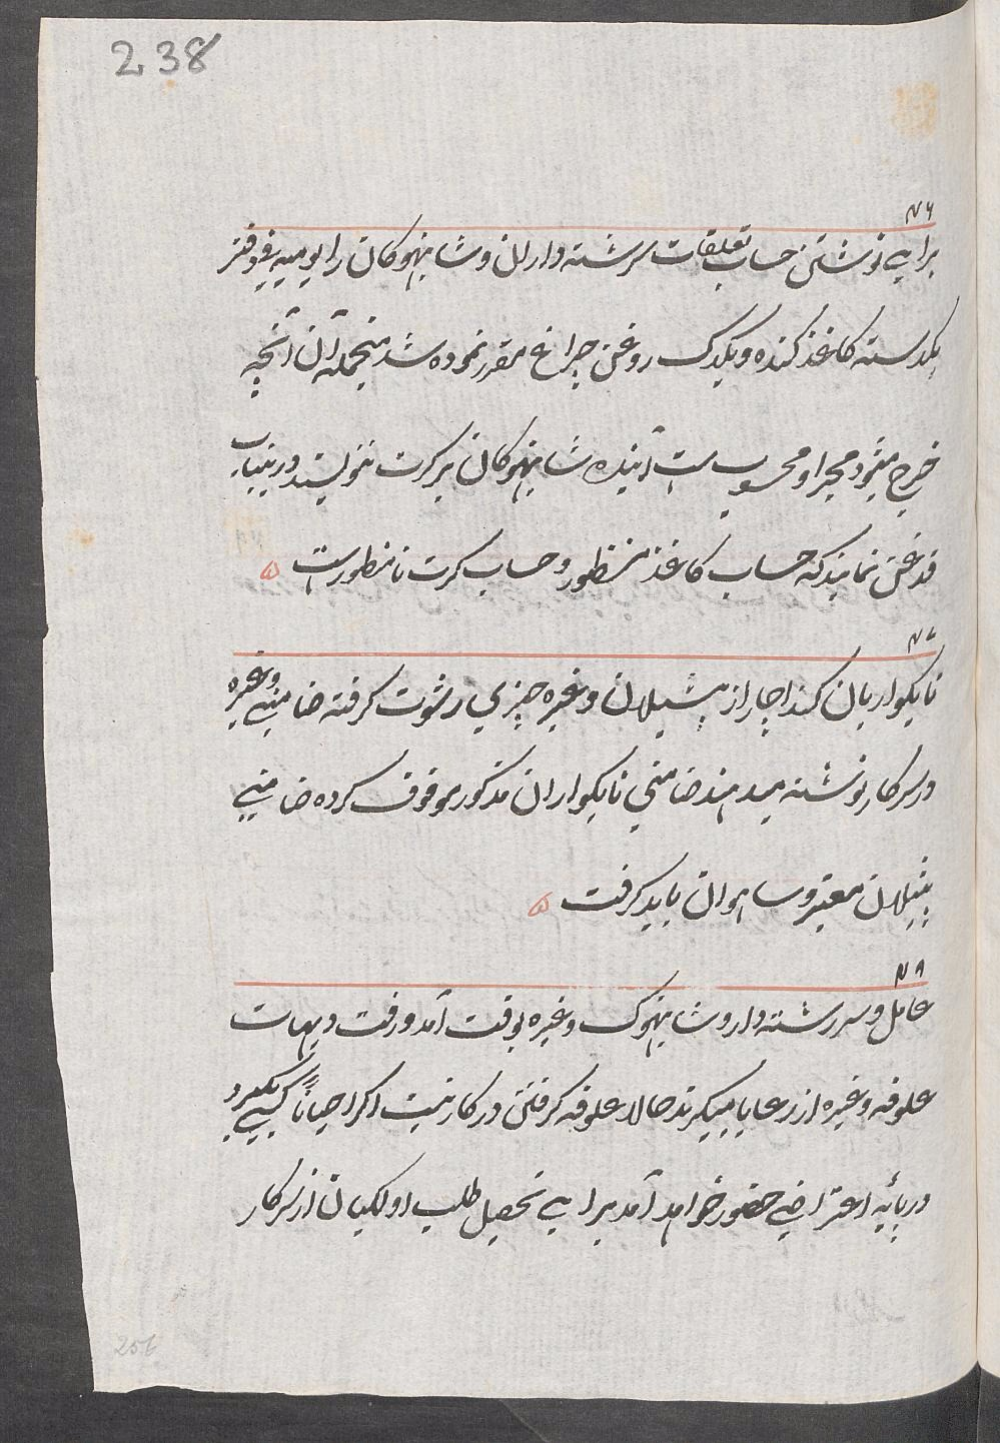 238
۷۶
برای نوشتن حساب تعلقات سرشته داران و شانبهوکان را یومیه فی دفتر
یکدسته کاغذ کنده و یکدک روغن چراغ مقرر نموده شد منجمله آن آنچه
خرج میشود مجرا و محسوبست آینده شانبهوکان بر کرت ننویسند درینباب
قدغن نمایند که حساب کاغذ منظور و حساب کرت نامنظور است ۵
۷۷
نایکواریان کنداچار از پتیلان و غیره چیزی رشوت گرفته ضامنی وغیره
در سرکار نوشته میدهند ضامنی نایکواران مذکور موقوف کرده ضامنی
پتیلان معتبر و ساهوان باید گرفت ۵
۷۸
عامل و سررشته دار و شانبهوک وغیره بوقت آمد و رفت دیهات
علوفه وغیره از رعایا میگیرند حالا علوفه گرفتن درکار نیست اگر احیاناً کسی بگیرد
در پائه اعتراضی حضور خواهد آمد برای تحصیل طلب اولکیان از سرکار
256